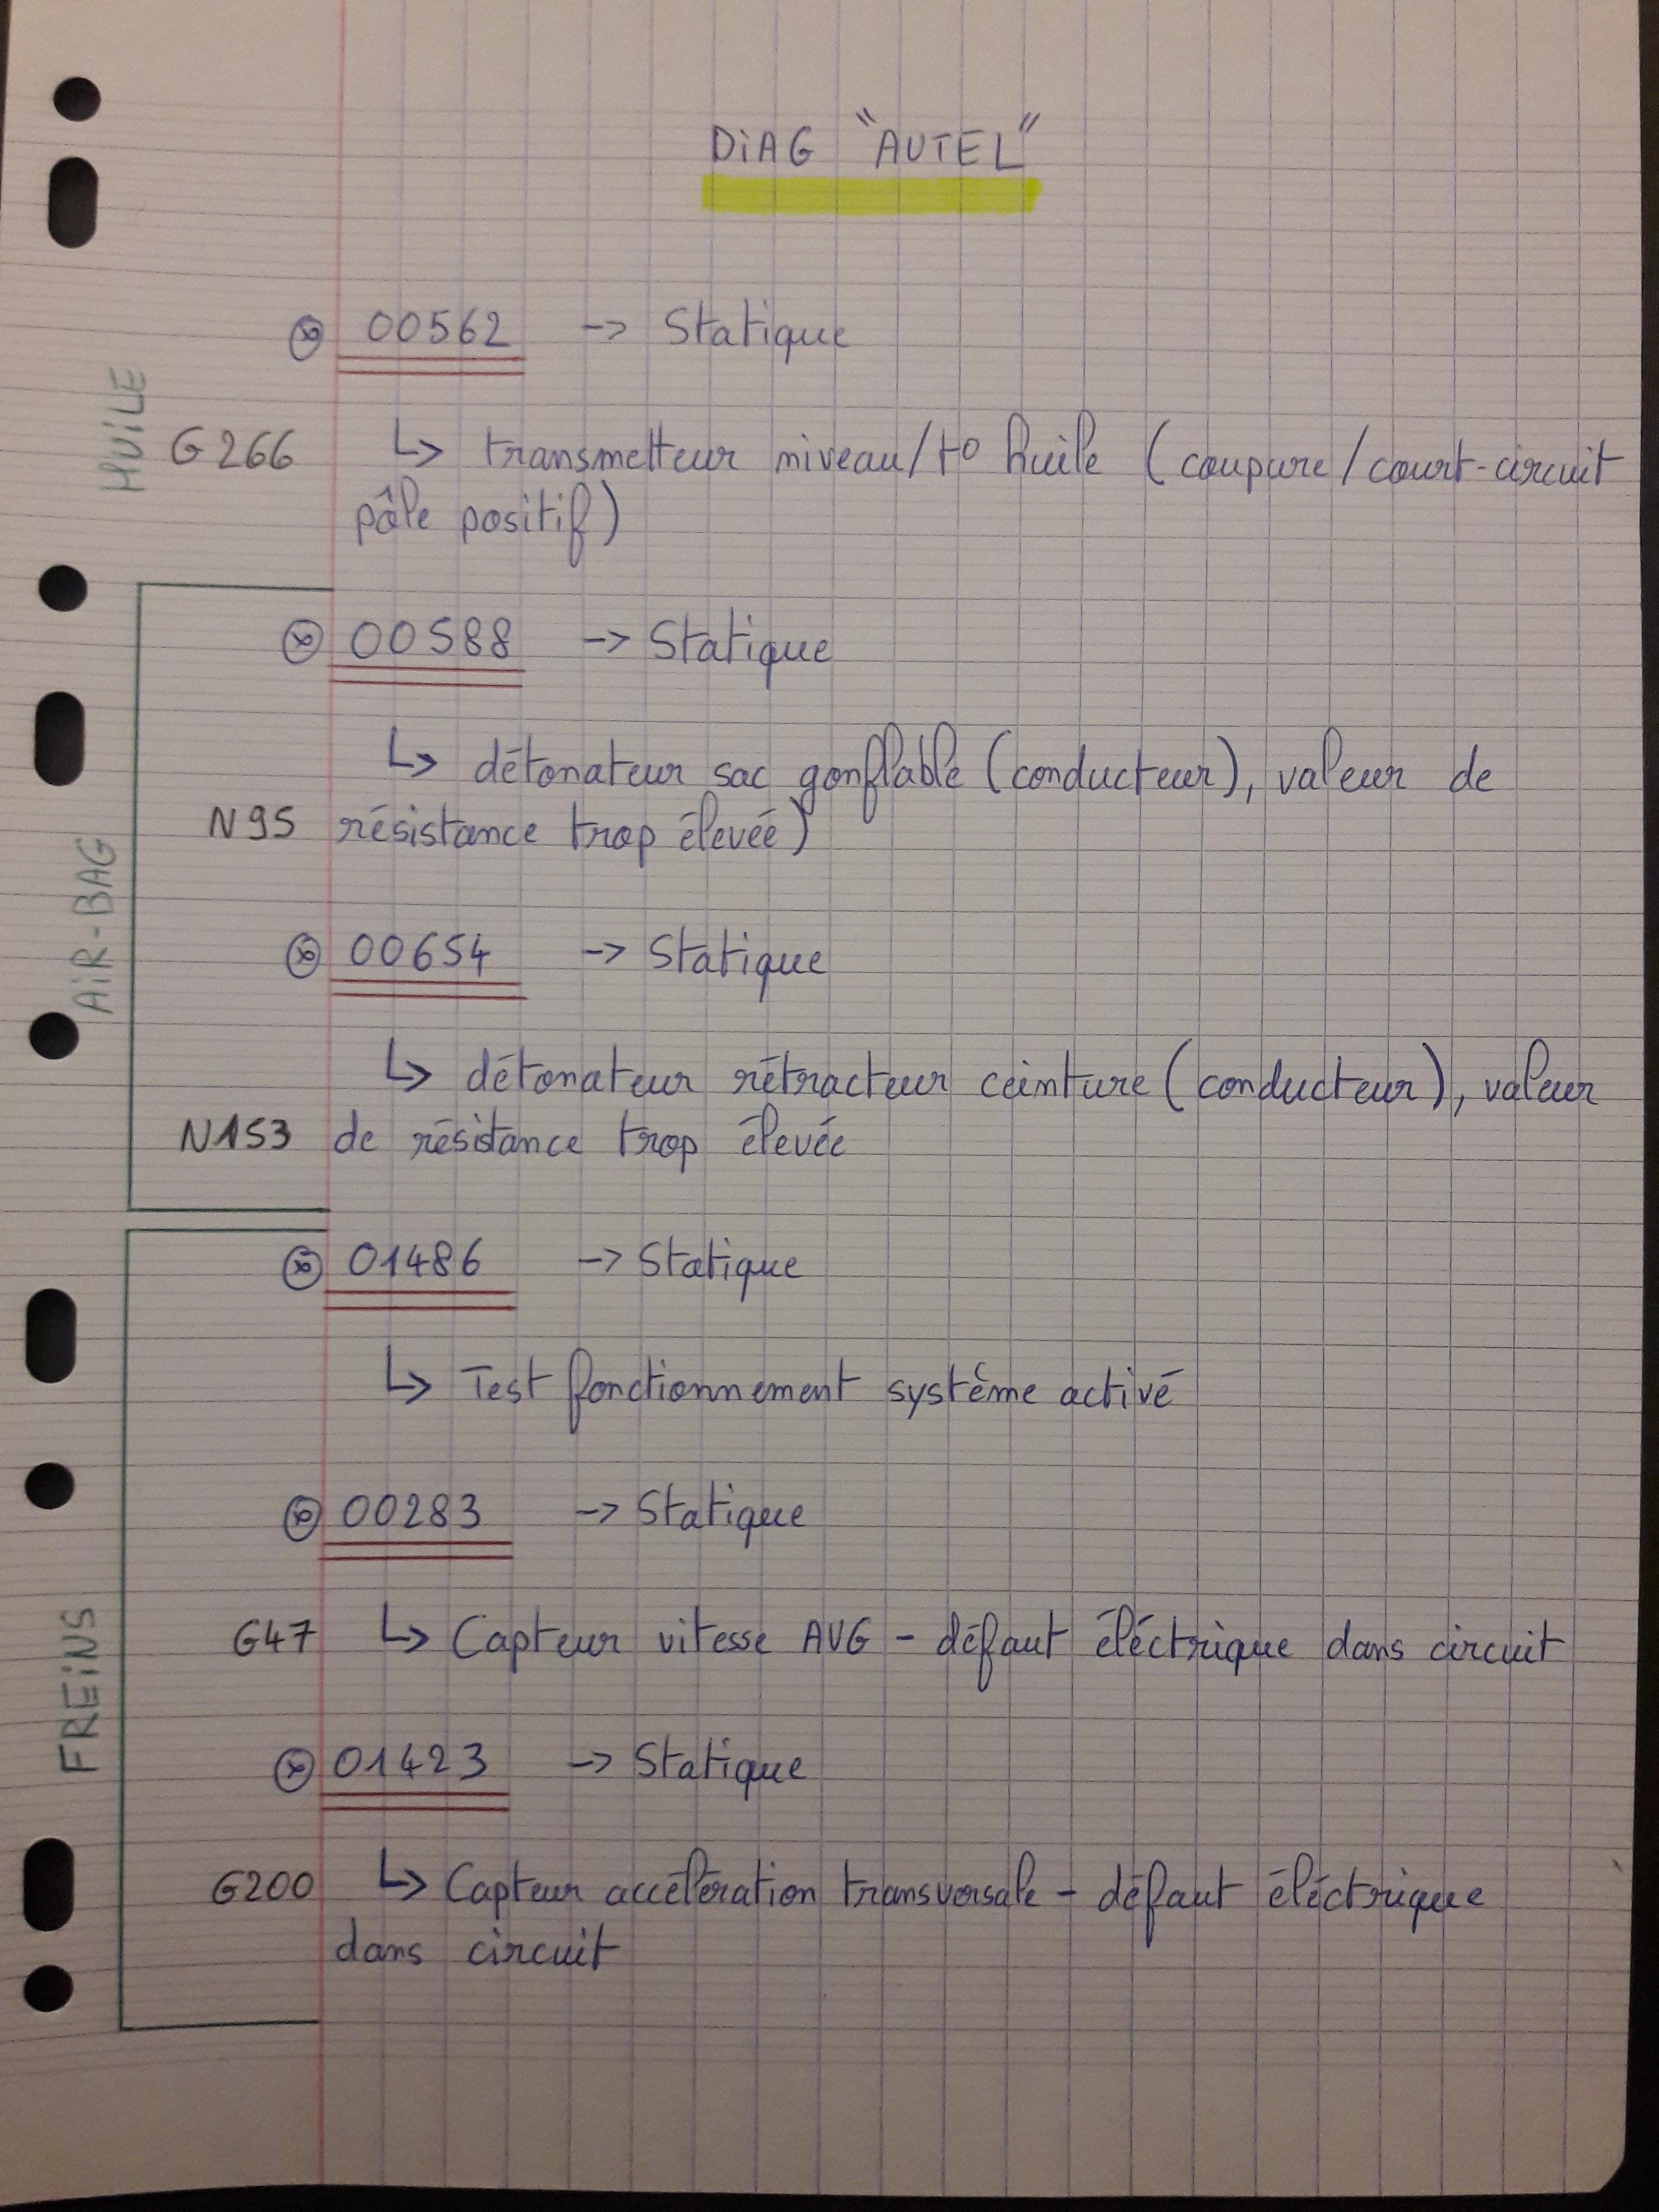 DiAG "AUTEL"
⊗ 00562 -> Statique
HUILE
G266 ↳ transmetteur niveau/t° huile (coupure/court-circuit
pôle positif)
⊗ 00588 -> Statique
↳ détonateur sac gonflable (conducteur), valeur de
N95 résistance trop élevée)
AiR-BAG
⊗ 00654 -> Statique
↳ détonateur rétracteur ceinture (conducteur), valeur
N153 de résistance trop élevée
⊗ 01486 -> Statique
↳ Test fonctionnement système activé
⊗ 00283 -> Statique
FREiNS
G47 ↳ Capteur vitesse AVG - défaut éléctrique dans circuit
⊗ 01423 -> Statique
G200 ↳ Capteur accélération transversale - défaut éléctrique
dans circuit